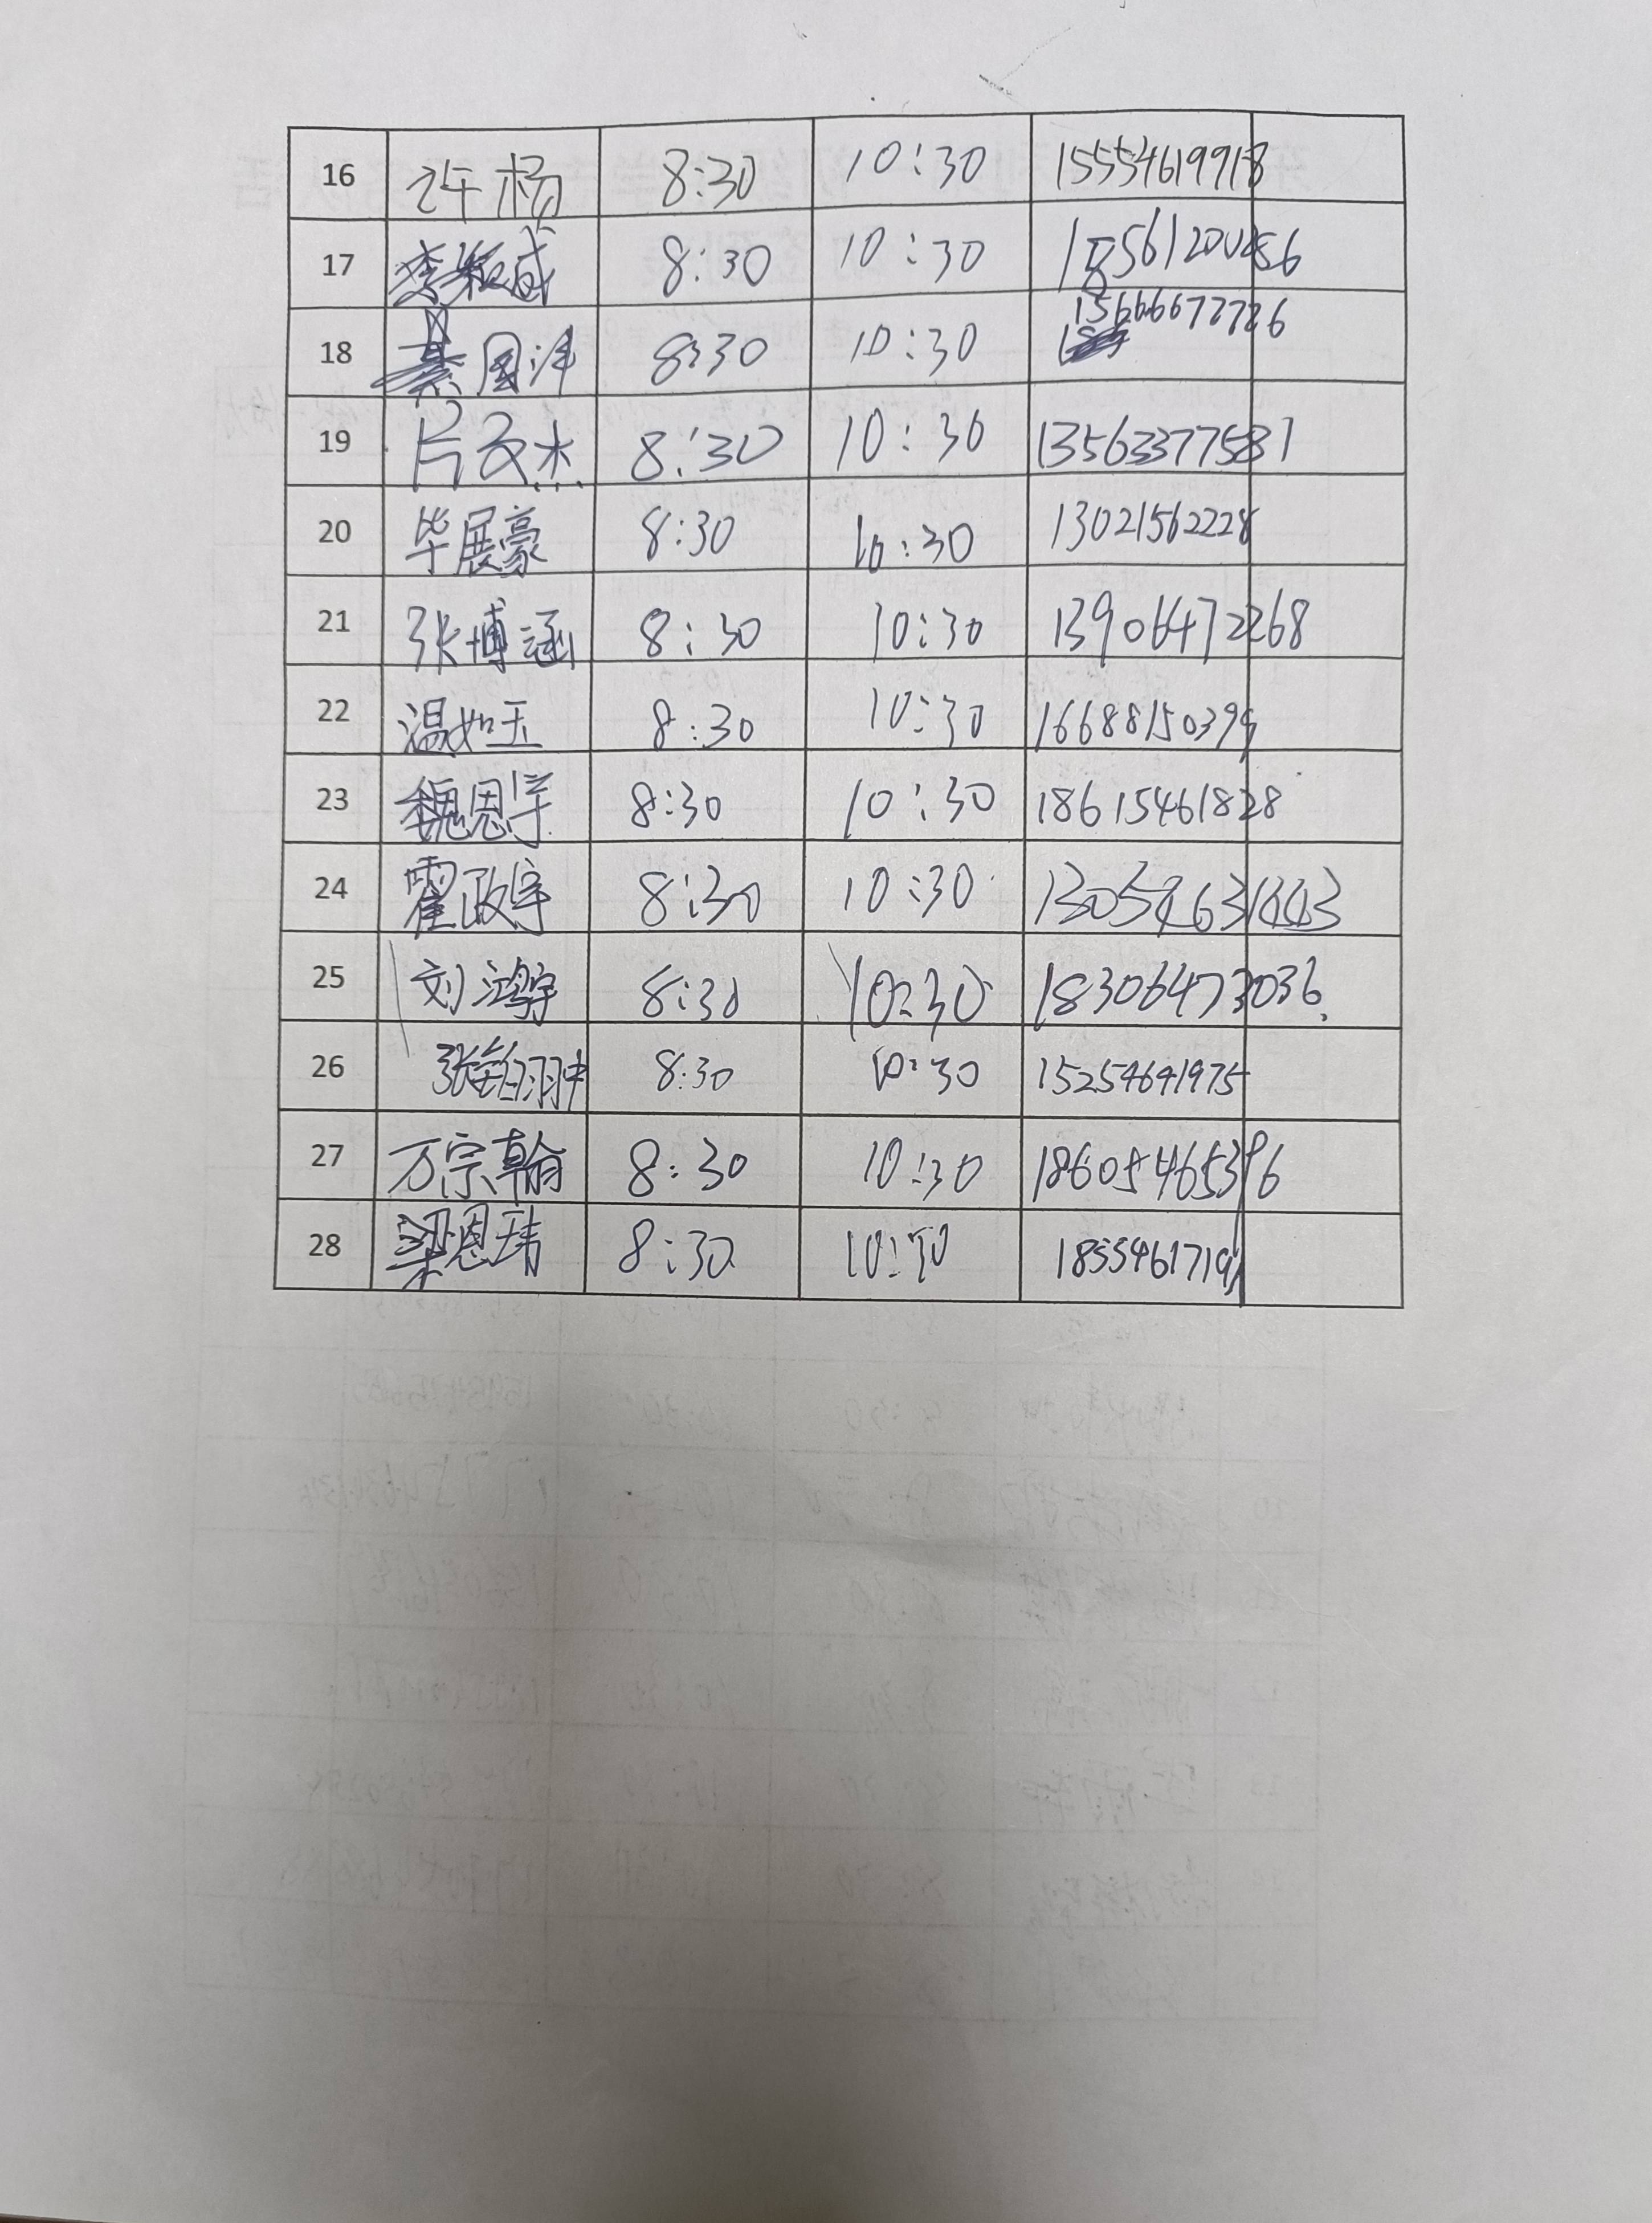 16 许杨 8:30 10:30 15554619918
17 李颖盛 8:30 10:30 18561200256
18 綦国洋 8:30 10:30 15666672726
19 8:30 10:30 13563377581
20 毕展豪 8:30 10:30 13021562228
21 张博涵 8:30 10:30 13906472268
22 温如玉 8:30 10:30 16688150399
23 魏恩洋 8:30 10:30 18615461828
24 霍政宇 8:30 10:30 13054631443
25 刘鸿宇 8:30 10:30 18306473036
26 8:30 10:30 15254641975
27 万宗翰 8:30 10:30 18605465396
28 梁恩玮 8:30 10:30 18554617191